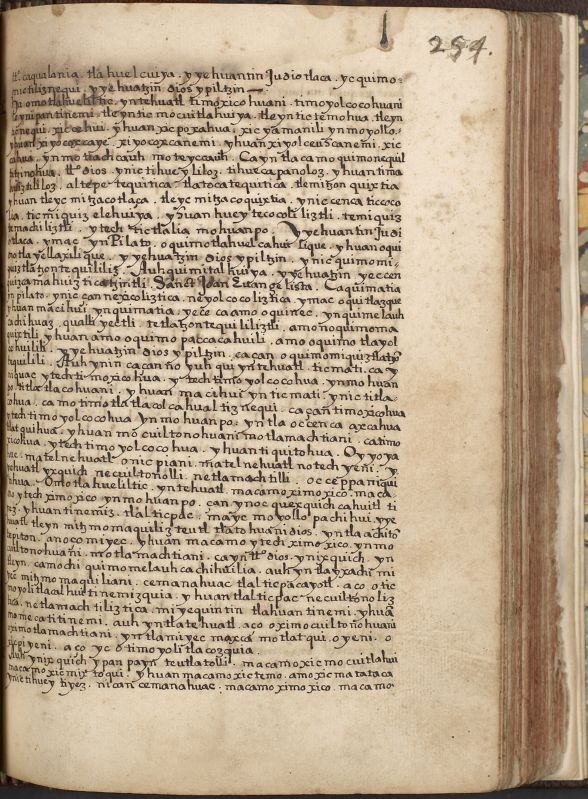 254.
caqualania. tlahuelcuiya. yyehuantin Judiotlaca. yc quimo=
mictiliznequi. yyehuatzin Dios ypiltzin —
omotlahueliltic. yntehuatl timoxicohuani. timoyolcocohuani
ynipantinemi. tleyntic mocuitlahuiya. tleyntic temohua. tleyn
ticnequi. xiccehui. yhuan xicpoxahua. xicyamanili ynmoyollo.
yhuan xiyocoxcaye. xiyocoxcanemi. yhuan xiyolceuhcanemi. xic
cahua. ynmotiachcauh moteyccauh. Cayntlacamo quimonequil
titinohua. tto dios. ynictihueyliloz. tihuecapanoloz. yhuan tima
huiztililoz. altepetequitica tlatocatequitica. tlemihtzon quixtia
yhuan tleyc mitzacotlaça. tleyc mitzacoquixtia. ynicenca ticcoco
lia. ticmiquizelehuiya. yhuan huey tecocoliliztli. temiquiz
temachiliztli. ytech tictlalia mohuanpo. Yyehuantin Judi
otlaca. ymac ynPilato. oquimotlahuelcahuilique. yhuan oqui
motlayellaxilique. yyehuatzin dios ypiltzin. ynic quimomi=
quiztlatzontequililiz. Auh quimitalhuiya. yyehuatzin yeccen
quizcamahuizticatzintli. Sanct Joan Euangelista. Caquimatia
ynpilato. ynic can nexicoliztica. neyolcocoliztica. ymac oquitlazque
yhuan macihui ynquimatia. yece caamo oquinec. ynquimelauh
cachihuaz. qualli yectli. tetlatzontequililiztli. amono quimoma
quixtili yhuan amo oquimopaccacahuili. amo oquimotlayol
cehuilili. yyehuatzin Dios ypiltzin. cacan oquimomiquiztlatzo
tequilili. Auh ynin cacan no yuh qui yntehuatl ticmati. ca y
miquac ytech timoxicohua. ytech timoyolcocohua. ynmohuan
po. titlatlacohuani. yhuan macihui yntic mati. ynic titla=
cohua. camo timotlatlacolcahualtiznequi. cacan timoxicohua
ytech timoyolcocohua ynmohuanpo. yntla occenca axcahua
tlatquihua. yhuan mocuiltonohuani motlamachtiani. catimo
xicohua. ytech timoyolcocohua. yhuan tiquitohua. Oyyoya
hue. matelnehuatl onicpiani. matelnehuatl notechyeni. y
yehuatl yxquich necuiltonolli. netlamachtilli. oceppaniqui
hua. Omotlahueliltic. yntehuatl. macamo ximoxico. maca
mo ytech ximoxico ynmohuanpo. can ynoc quexquich cahuitl ti
yez. yhuan tinemiz. tlalticpac. mayc moyollo pachihui. yye
huatl tleyn mitzmomaquiliz teutl tlatohuani dios. yntla achito
tepiton. anoço miyec. yhuan macamo ytech ximoxico. ynmo
cuiltonohuani. motlamachtiani. cayntto dios. ynixquich. yn
tleyn. camochi quimomelauhcachihuilia. auh yntlayxachi mi
yec mitzmomaquiliani. cemanahuac tlalticpacayotl. aço otic
moyolitlacalhuitinemizquia. yhuan tlalticpac necuiltonoliz
tica. netlamachtiliztica. miyequintin tlahuantinemi. yhuan
mamecatitinemi. auh yntlatehuatl. aço oximocuiltonohuani
oximotlamachtiani. yntlamiyec maxca motlatqui. oyeni. o
ticpiyeni. aço yc otimoyolitlacozquia.
Auh ynixquich ypan payn teutlatolli. macamo xicmocuitlahui
macamo xicmixtoqui. yhuan macamo xictemo. amo xicmatataca
ynic tihuey tiyez. nican cemanahuac. macamo ximoxico. macamo